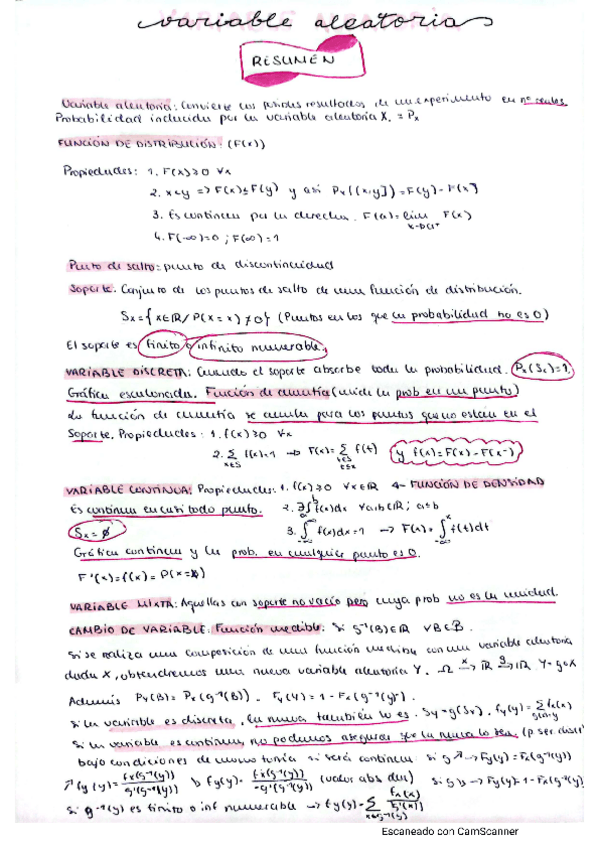 variable aleatoria
RESUMEN
Variable aleatoria: Convierte los posibles resultados de un experimento en nº reales.
Probabilidad inducida por la variable aleatoria X. = Px
FUNCIÓN DE DISTRIBUCIÓN: (F(x))
Propiedades: 1. F(x)≥0 ∀x
2. x<y => F(x)≤F(y) y así Px((x,y])=F(y)-F(x)
3. Es continua por la derecha. F(a)=lim F(x)
x→a+
4. F(-∞)=0 ; F(∞)=1
Punto de salto: punto de discontinuidad
Soporte. Conjunto de los puntos de salto de una función de distribución.
Sx={x∈R/P(X=x)≠0} (Puntos en los que la probabilidad no es 0)
El soporte es finito o infinito numerable.
VARIABLE DISCRETA: Cuando el soporte absorbe toda la probabilidad. Px(Sx)=1.
Gráfica escalonada. Función de cuantía (mide la prob en un punto)
La función de cuantía se anula para los puntos que no están en el
Soporte. Propiedades: 1. f(x)≥0 ∀x
2. Σ f(x)=1 → F(x)=Σ f(t) y f(x)=F(x)-F(x-)
x∈S t∈S
t≤x
VARIABLE CONTINUA: Propiedades: 1. f(x)≥0 ∀x∈R FUNCIÓN DE DENSIDAD
Es continua en casi todo punto. 2. ∃∫ₐᵇf(x)dx ∀a,b∈R; a≤b
Sx=∅ 3. ∫f(x)dx=1 → F(x)=∫f(t)dt
Gráfica continua y la prob. en cualquier punto es 0.
F'(x)=f(x)=P(X=x)
VARIABLE MIXTA: Aquellas con soporte no vacío pero cuya prob no es la unidad.
CAMBIO DE VARIABLE. Función medible: Si g⁻¹(B)∈B ∀B∈B.
Si se realiza una composición de una función medible con una variable aleatoria
dada X, obtendremos una nueva variable aleatoria Y. Ω →R →R Y=g∘X
Además PY(B)=Px(g⁻¹(B)).
Si la variable es discreta, la nueva también lo es. Sy=g(Sx).
Si la variable es continua, no podemos asegurar que la nueva lo sea.
bajo condiciones de monotonía sí será continua si g↗→Fy(y)=Fx(g⁻¹(y))
(valor abs den) si g↘→Fy(y)=1-Fx(g⁻¹(y))
Si g⁻¹(y) es finito o inf numerable →
Escaneado con CamScanner